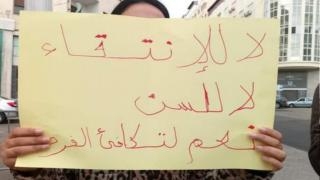 لا للإنتقاء
لا للسن
نعم لتكافئ الفرص